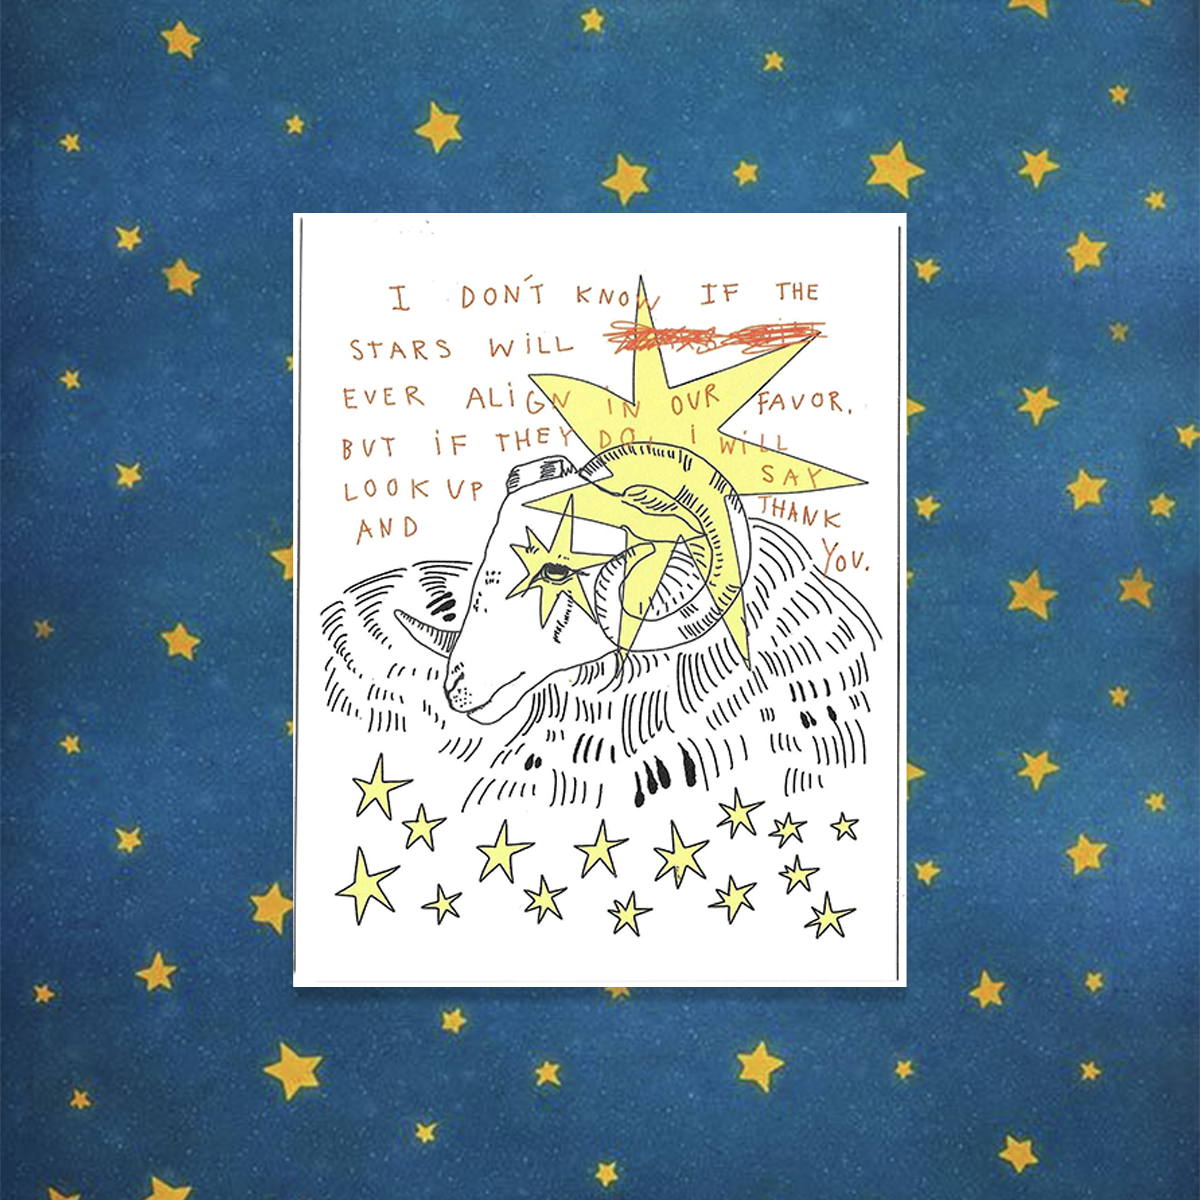 I DON'T KNOW IF THE
STARS WILL
EVER ALiGN iN OUR FAVOR.
BUT iF THEY DO, i WiLL
LOOK UP SAY
AND THANK
YOU.